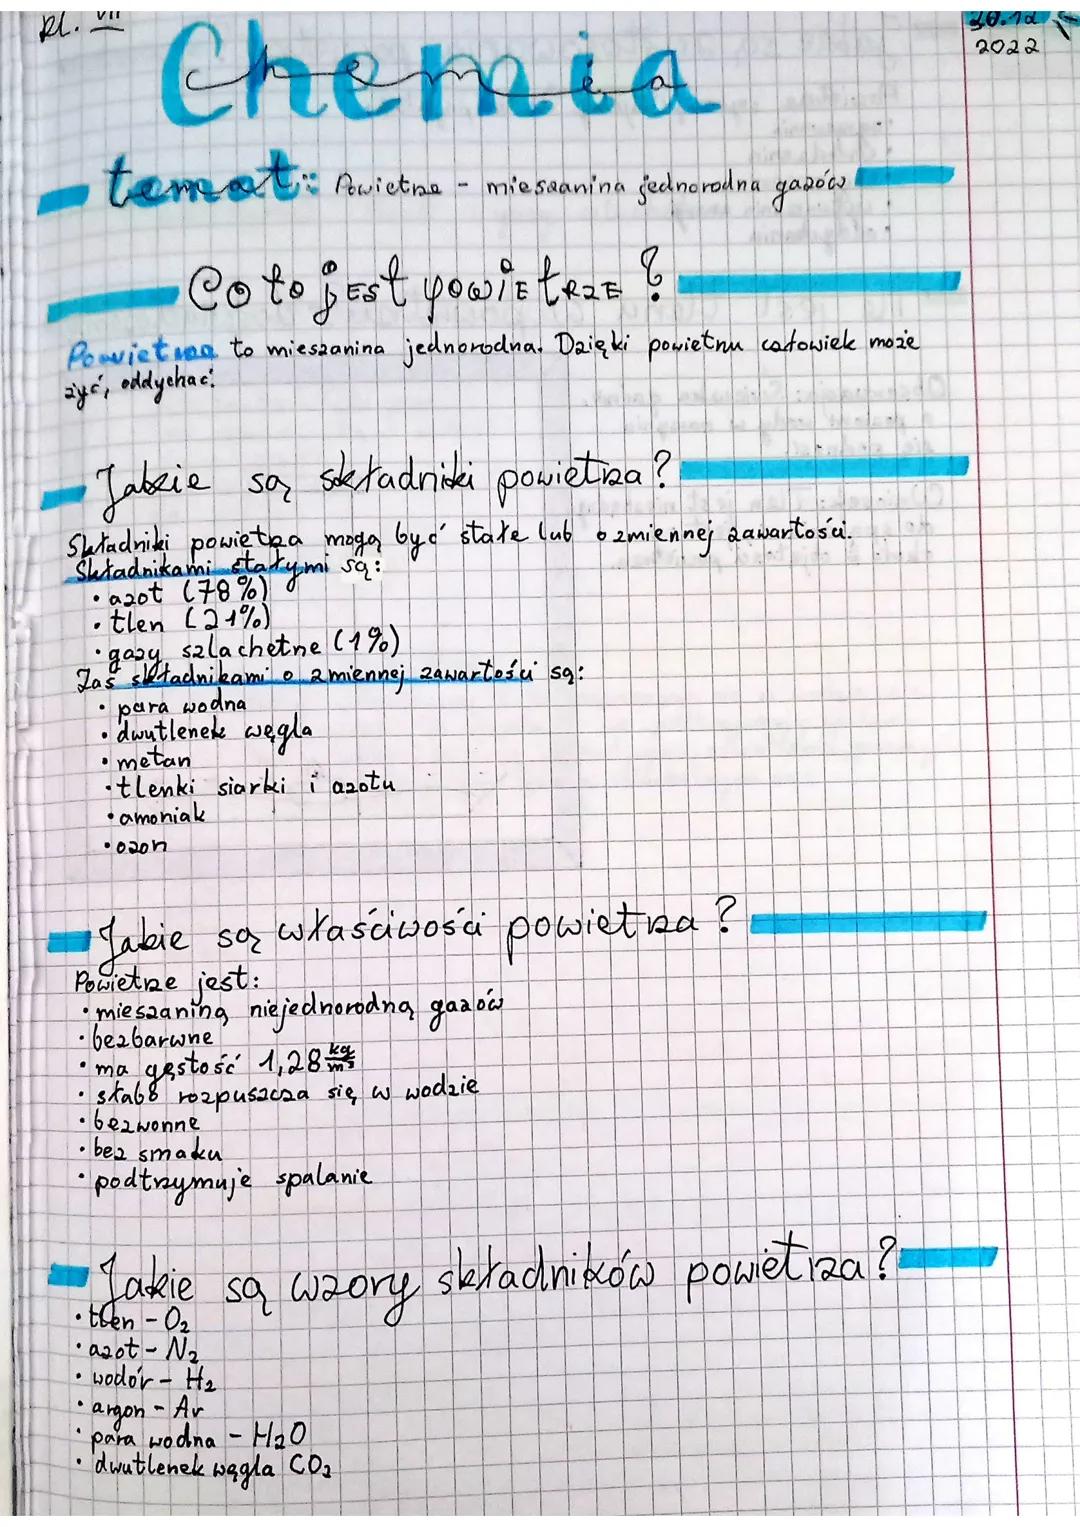 kl. VII
30.12
2022
Chemia
temat: Powietrze - mieszanina jednorodna gazów
Co to jest powietrze?
Powietrze to mieszanina jednorodna. Dzięki powietrzu człowiek może
żyć, oddychać.
Jakie są składniki powietrza?
Składniki powietrza mogą być stałe lub o zmiennej zawartości.
Składnikami stałymi są:
• azot (78%)
• tlen (21%)
• gazy szlachetne (1%)
Zaś składnikami o zmiennej zawartości są:
• para wodna
• dwutlenek węgla
• metan
• tlenki siarki i azotu
• amoniak
• ozon
Jakie są właściwości powietrza?
Powietrze jest:
• mieszaniną niejednorodną gazów
• bezbarwne
• ma gęstość 1,28 kg/m³
• słabo rozpuszcza się w wodzie
• bezwonne
• bez smaku
• podtrzymuje spalanie
Jakie są wzory składników powietrza?
• tlen - O₂
• azot - N₂
• wodór - H₂
• argon - Ar
• para wodna - H₂O
• dwutlenek węgla CO₂